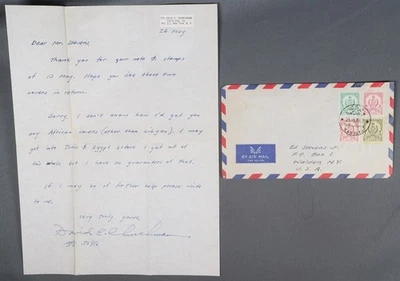 26 May
Dear Mr. Stevens,
Thank you for your note & stamps
of 12 May. Hope you like these two
covers in return.
Sorry, I don't know how I'd get you
any African covers (other than Libyan). I may
get into & Egypt before I get out of
this but I have no guarantees of that.
If I may be of further help please write
to me.
Very truly yours,
David E.
BY AIR MAIL
PAR AVION
Ed Stevens Jr.
P.O. Box 1
Walden N.Y.
U.S.A.